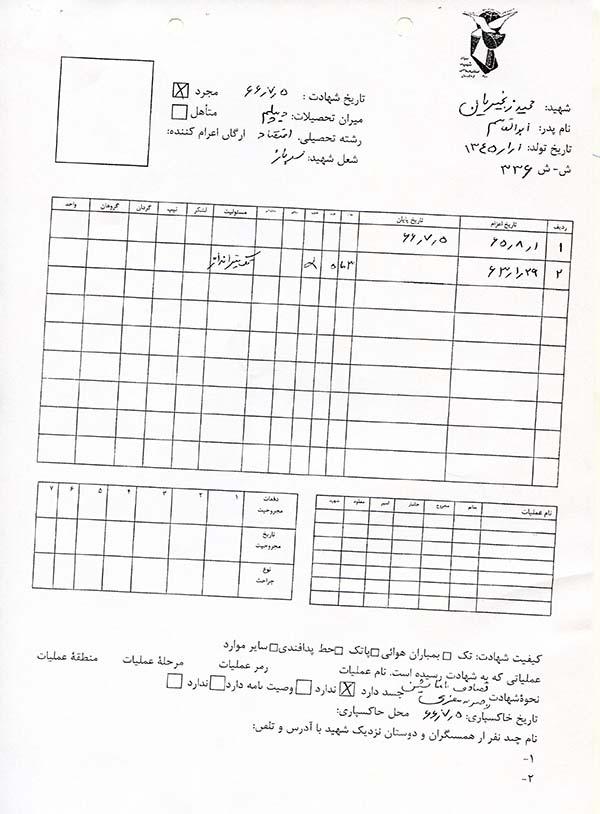 شهید: حمید زنجیریان
نام پدر: ابوالقاسم
تاریخ تولد: ۱ر۱ر۱۳۴۵
ش-ش ۳۳۶
تاریخ شهادت: ۶۶٫۷٫۵
مجرد X
میران تحصیلات: دیپلم
متأهل
رشته تحصیلی: اقتصاد ارگان اعزام کننده:
شغل شهید: سرباز
ردیف تاریخ اعزام تاریخ پایان مسئولیت لشکر تیپ گردان گروهان واحد
۱ ۶۵٫۸٫۱ ۶۶٫۷٫۵
۲ ۶۳٫۱٫۲۹ تک تیرانداز
دفعات مجروحیت ۱ ۲ ۳ ۴ ۵ ۶ ۷
تاریخ مجروحیت
نوع جراحت
نام عملیات سالم مجروح جانباز اسیر مفقود شهید
کیفیت شهادت: تک بمباران هوائی پاتک خط پدافندی سایر موارد
عملیاتی که به شهادت رسیده است. نام عملیات رمر عملیات مرحلهٔ عملیات منطقهٔ عملیات
نحوهٔشهادت تصادف با ماشین ضربه مغزی جسد دارد X ندارد وصیت نامه دارد ندارد
تاریخ خاکسپاری: ۶۶٫۷٫۵ محل خاکسپاری:
نام چند نفر از همسنگران و دوستان نزدیک شهید با آدرس و تلفن:
۱-
۲-